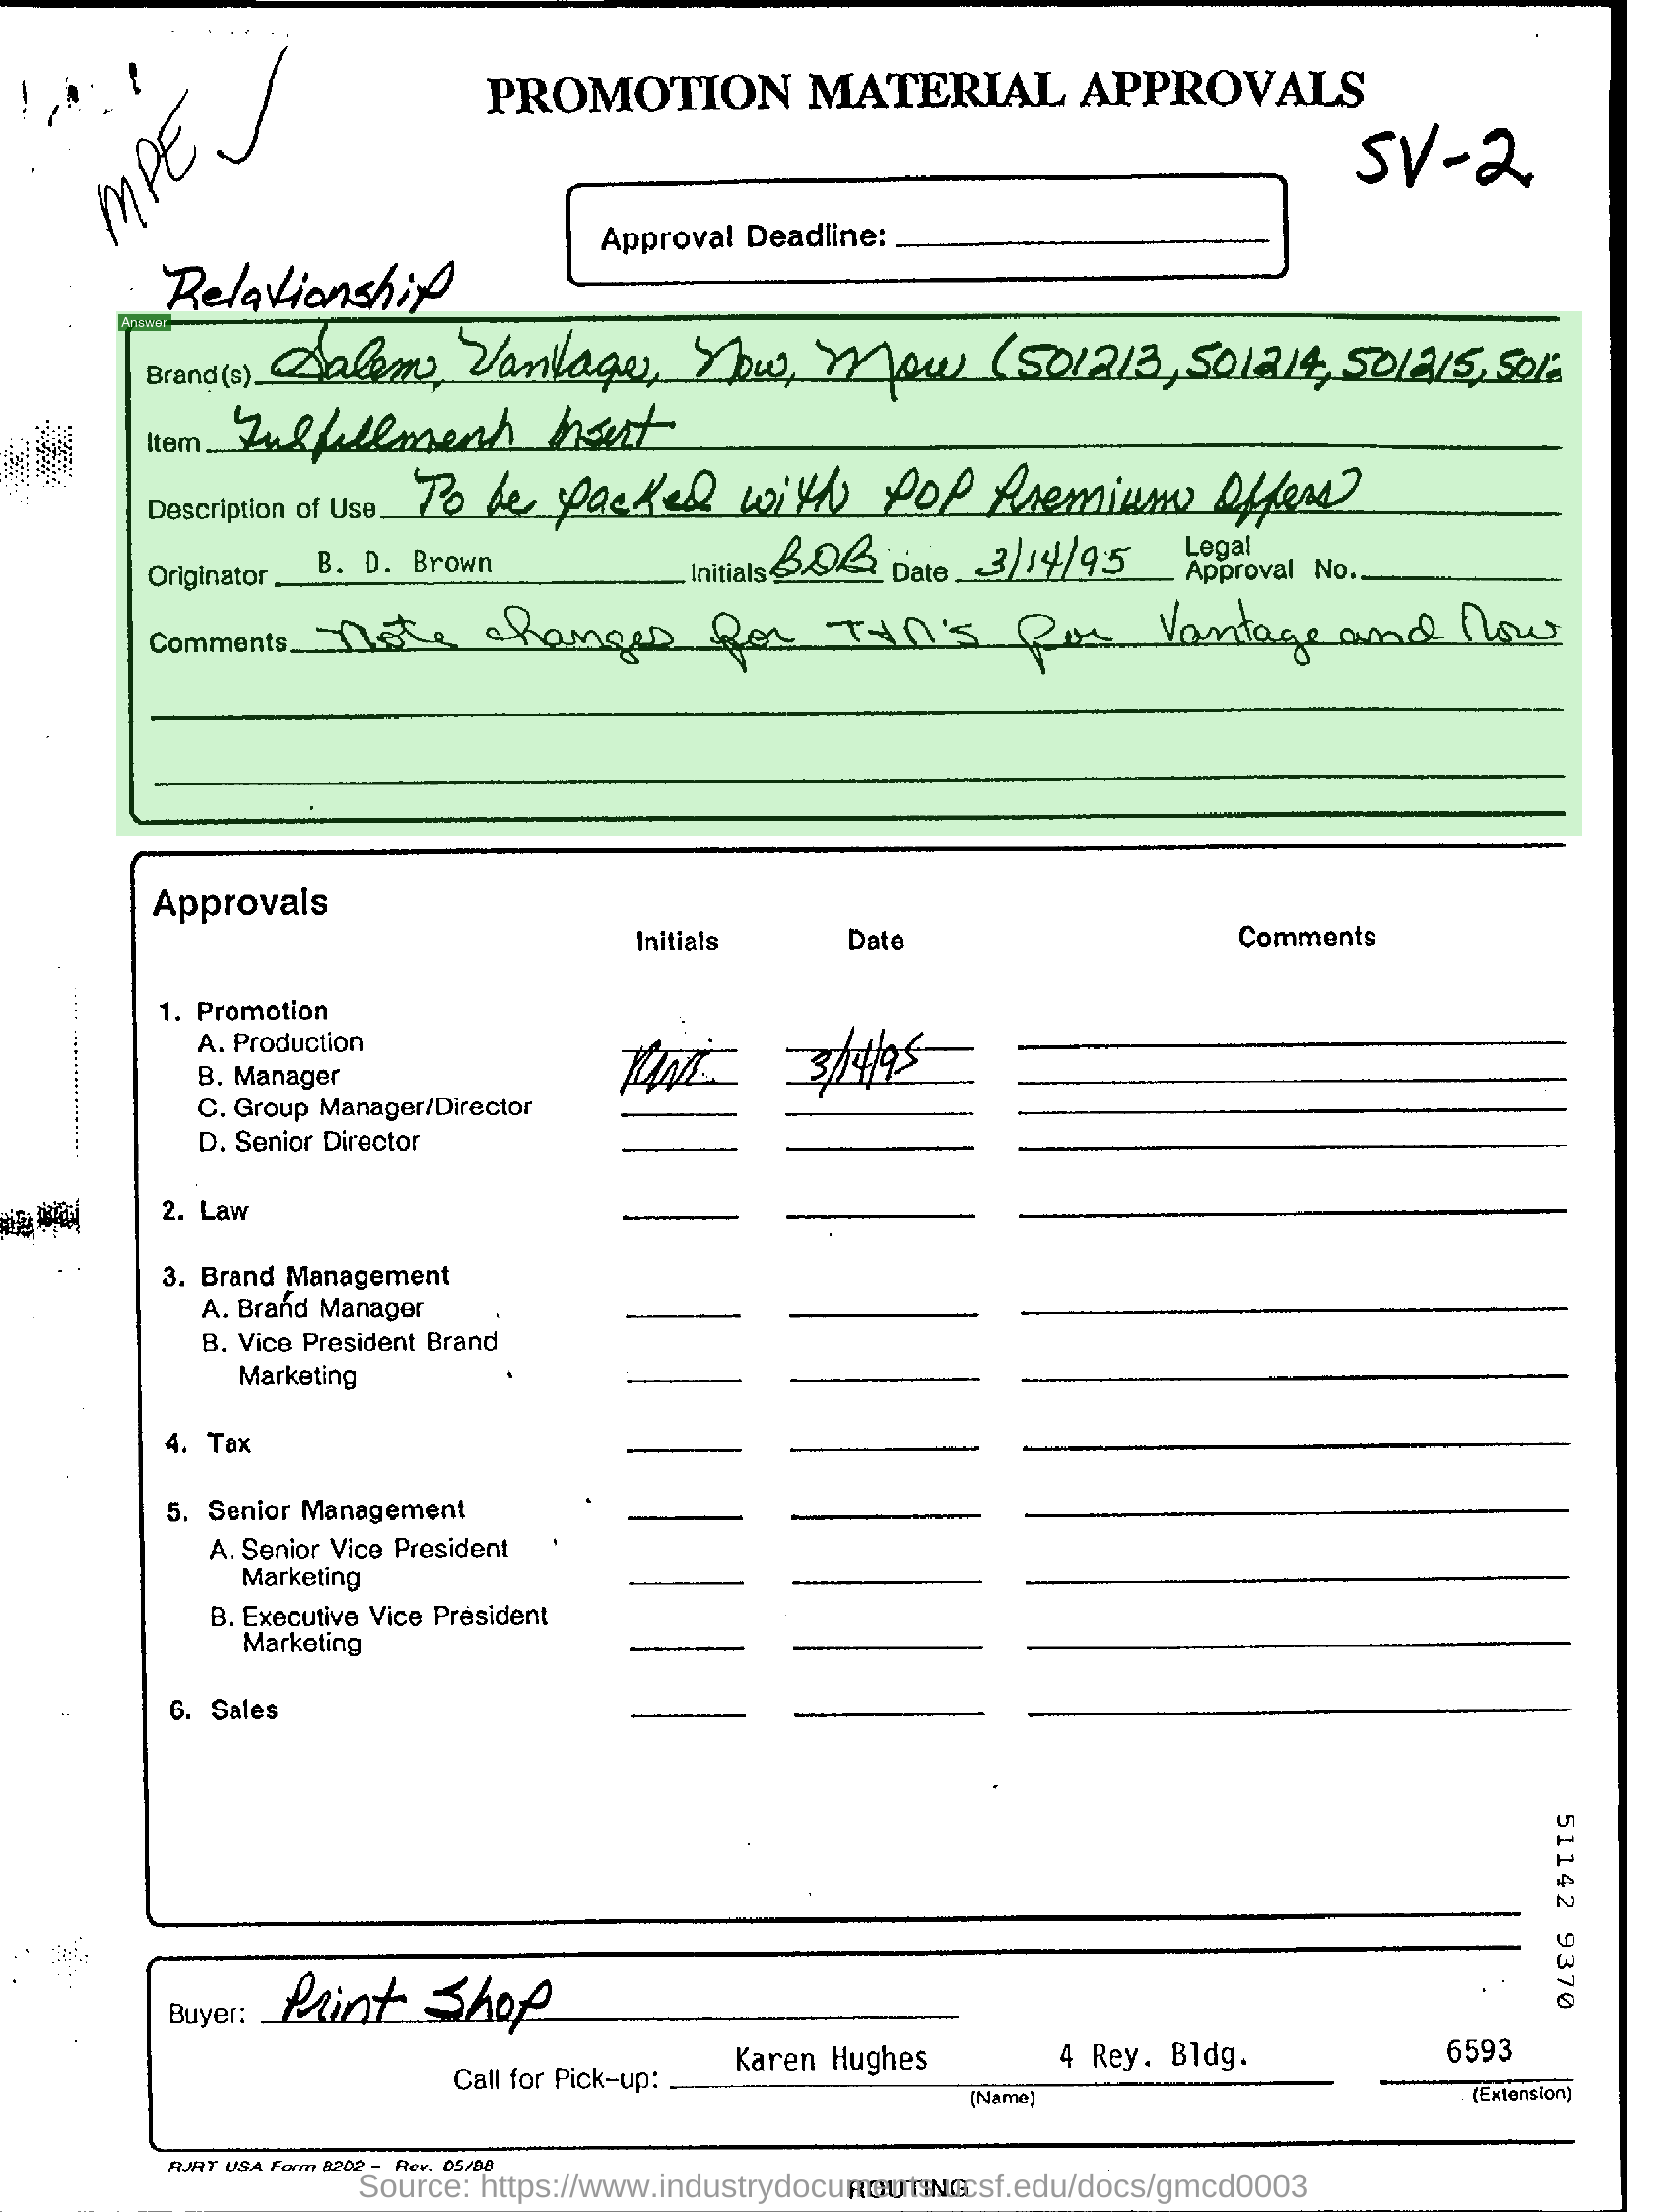 PROMOTION MATERIAL APPROVALS
MPE
SV-2
Approval Deadline:
Relationship
Answer
Brand(s) Salem, Vantage, Now, More (501213, 501214, 501215, 501
Item Fulfillment Insert
Description of Use To be packed with POP Premium Offers
Originator B. D. Brown Initials BDB Date 3/14/95 Legal Approval No.
Comments Note changes for T&N's for Vantage and Now
Approvals
Initials Date Comments
1. Promotion
A. Production
B. Manager 3/14/95
C. Group Manager/Director
D. Senior Director
2. Law
3. Brand Management
A. Brand Manager
B. Vice President Brand
Marketing
4. Tax
5. Senior Management
A. Senior Vice President
Marketing
B. Executive Vice President
Marketing
6. Sales
51142 9370
Buyer: Print Shop
Call for Pick-up: Karen Hughes 4 Rey. Bldg. 6593
(Name) (Extension)
RJRT USA Form 8202 - Rev. 05/88
ROUTING
Source: https://www.industrydocuments.ucsf.edu/docs/gmcd0003